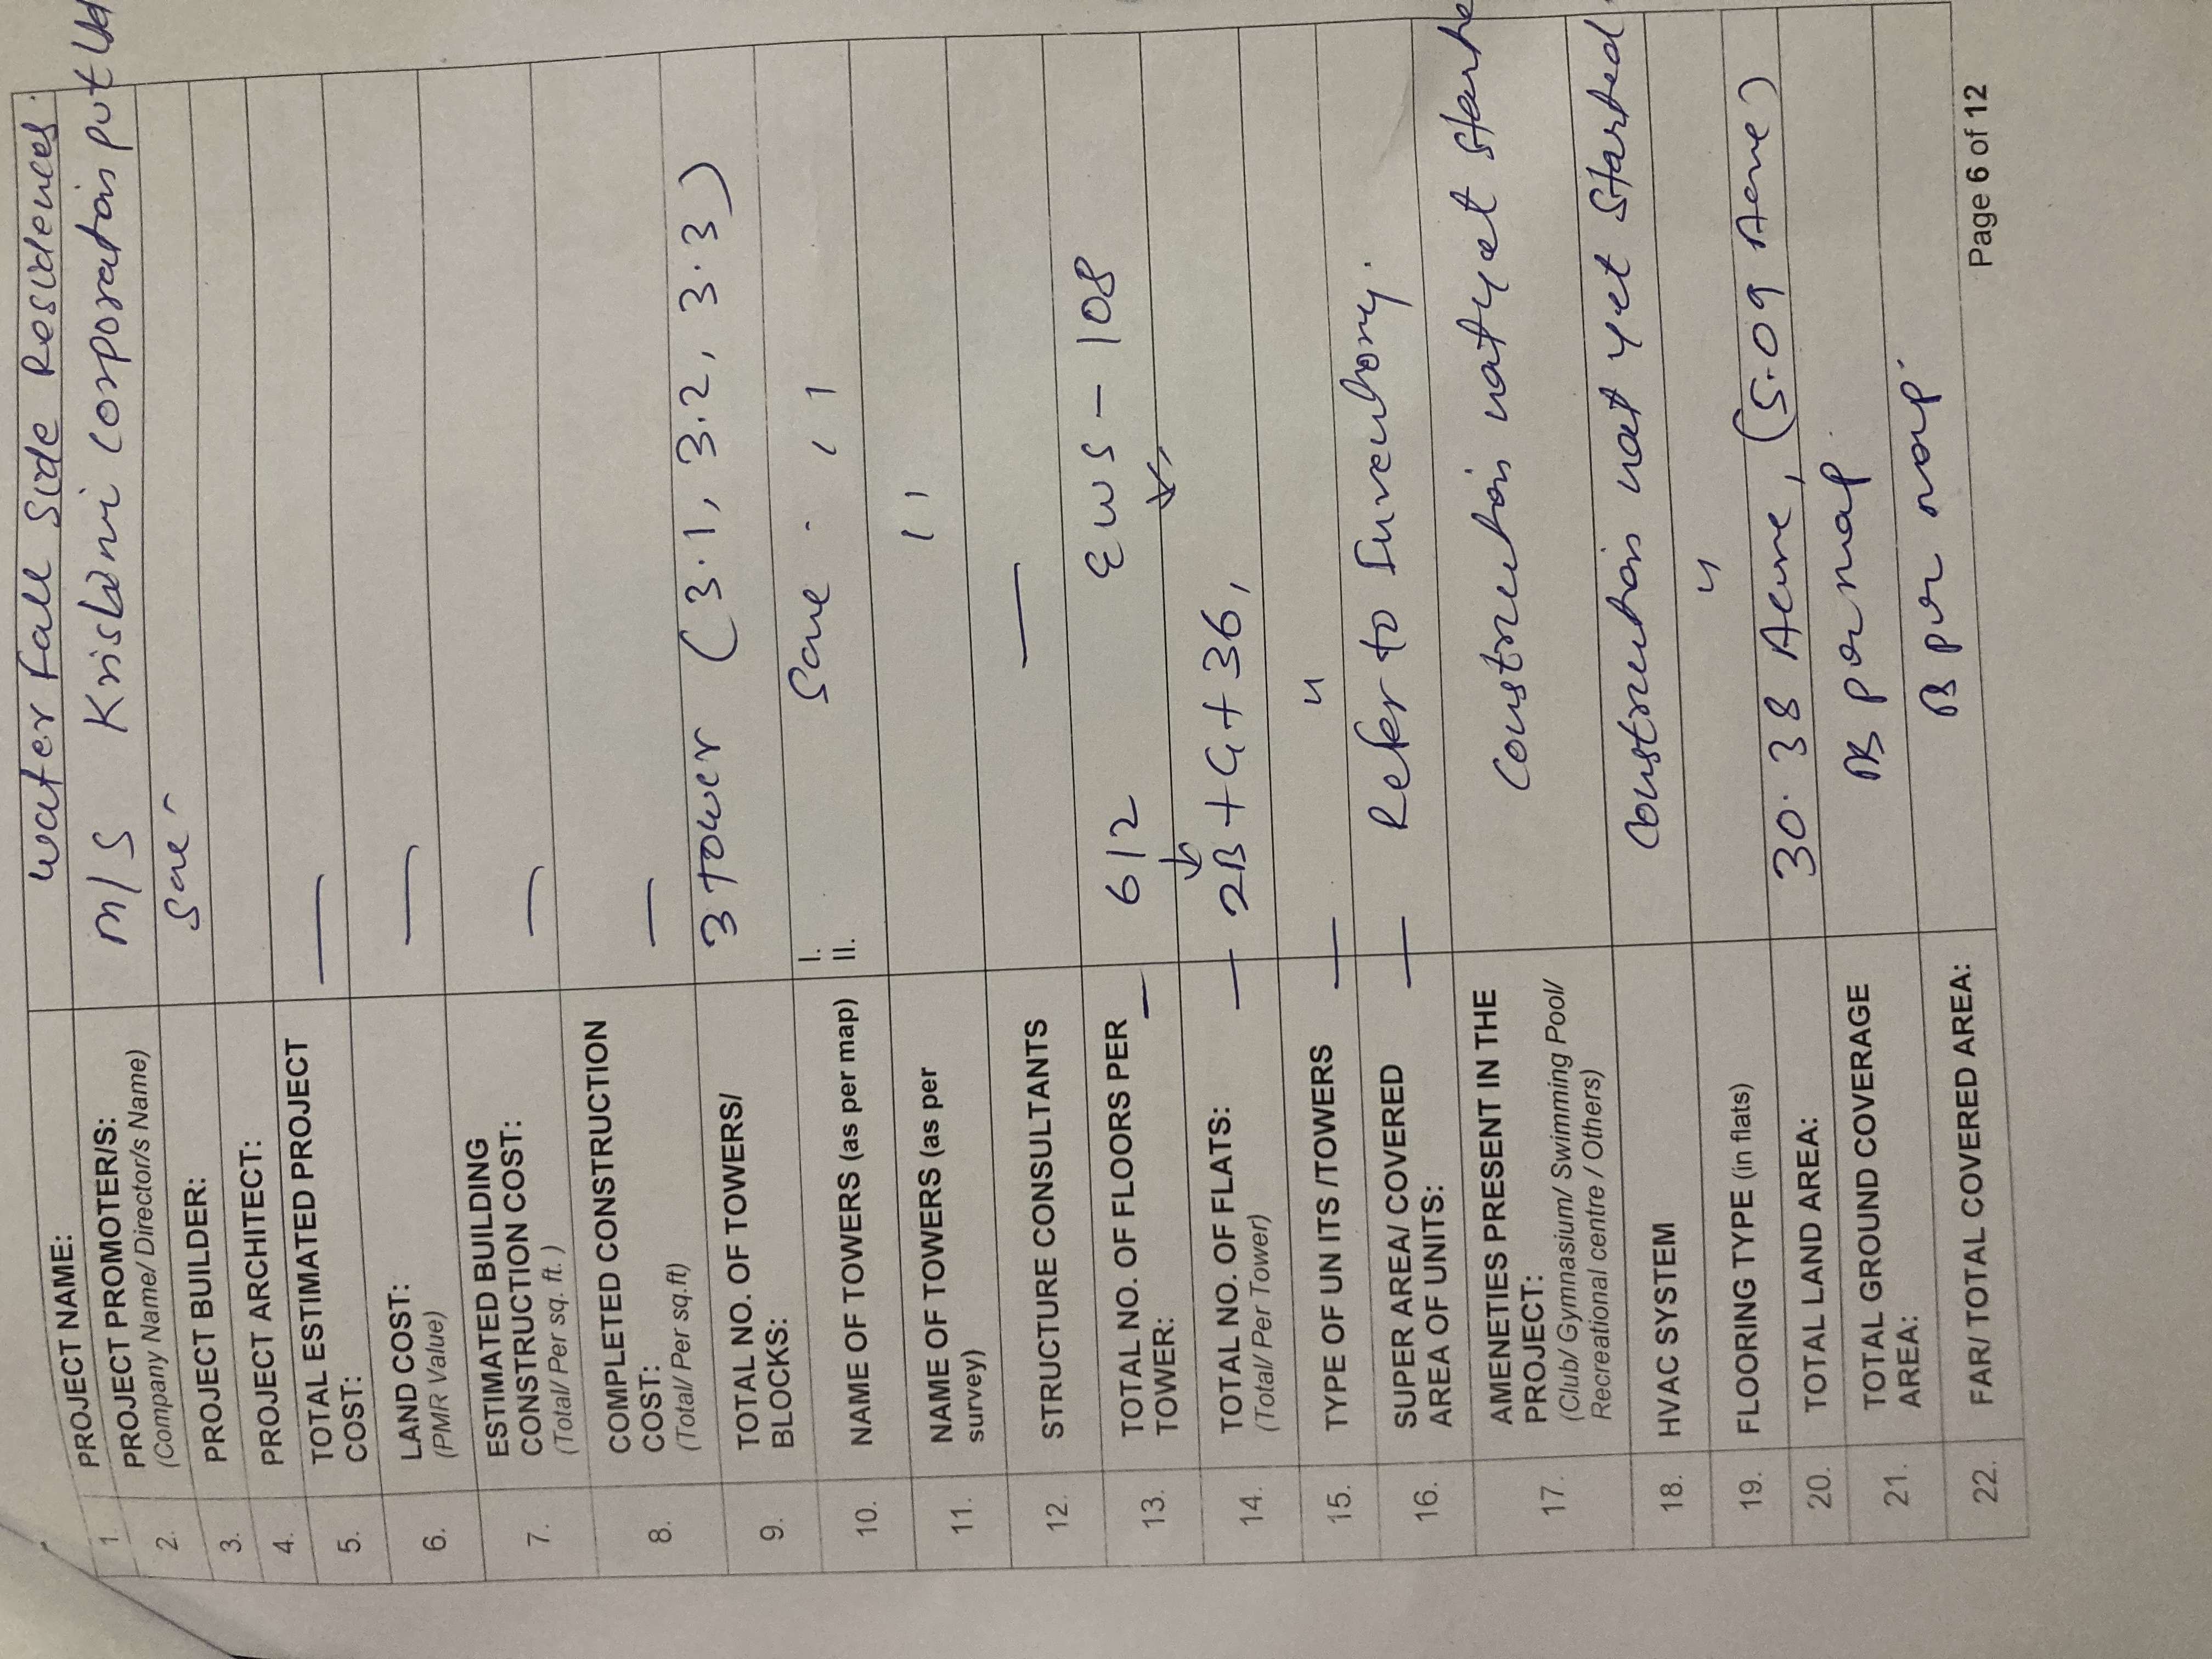 1 PROJECT NAME: Water Fall Side Residences.
2. PROJECT PROMOTER/S: M/S Krislani Corporation Pvt Ltd
(Company Name/ Director/s Name)
3. PROJECT BUILDER: Same
4. PROJECT ARCHITECT:
5. TOTAL ESTIMATED PROJECT —
COST:
6. LAND COST: —
(PMR Value)
7. ESTIMATED BUILDING —
CONSTRUCTION COST:
(Total/ Per sq. ft. )
8. COMPLETED CONSTRUCTION —
COST:
(Total/ Per sq.ft)
9. TOTAL NO. OF TOWERS/ 3 Tower (3.1, 3.2, 3.3)
BLOCKS:
10. NAME OF TOWERS (as per map) I. Same . ,,
II.
11. NAME OF TOWERS (as per ,,
survey)
12. STRUCTURE CONSULTANTS —
13. TOTAL NO. OF FLOORS PER — 612 EWS - 108
TOWER:
14. TOTAL NO. OF FLATS: — 2B + G + 36,
(Total/ Per Tower)
15. TYPE OF UN ITS /TOWERS — "
16. SUPER AREA/ COVERED — Refer to Inventory.
AREA OF UNITS:
17. AMENETIES PRESENT IN THE Construction not yet starte
PROJECT:
(Club/ Gymnasium/ Swimming Pool/
Recreational centre / Others)
18. HVAC SYSTEM Construction not yet Started
19. FLOORING TYPE (in flats) "
20. TOTAL LAND AREA: 30.38 Acre, (5.09 Acre)
21. TOTAL GROUND COVERAGE As per map.
AREA:
22. FAR/ TOTAL COVERED AREA: As per map.
Page 6 of 12